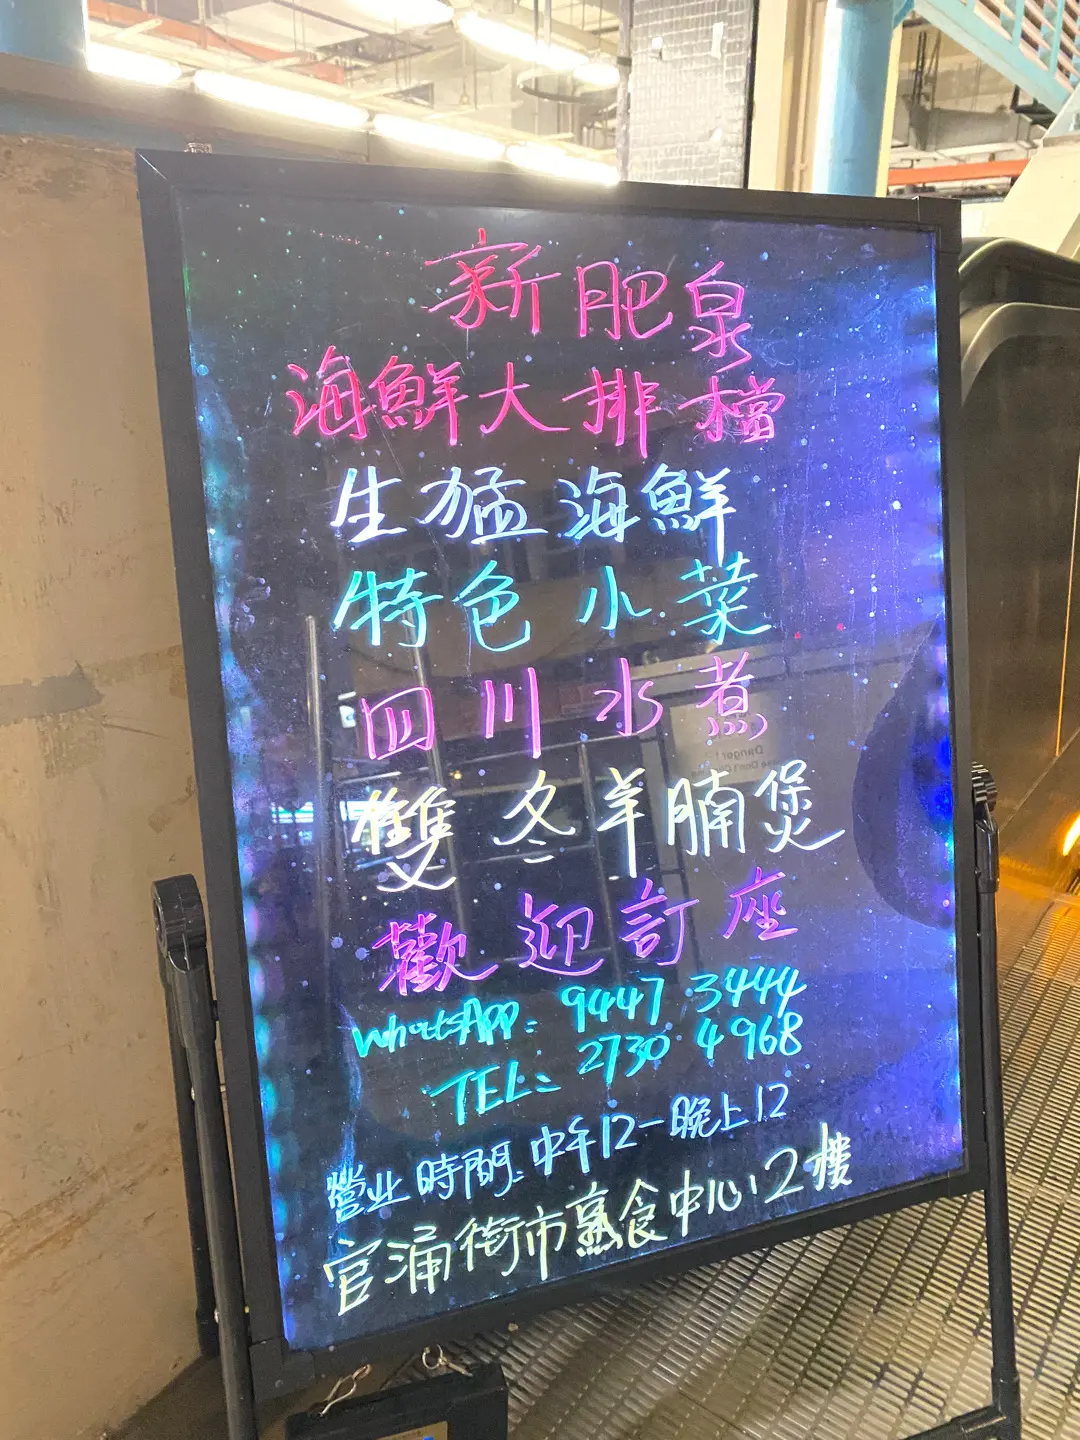 新肥泉
海鮮大排檔
生猛海鮮
特色小菜
四川水煮
雙冬羊腩煲
歡迎訂座
WhatsApp: 9447 3444
TEL: 2730 4968
營业時間: 中午12-晚上12
官涌街市熟食中心2樓
Danger!